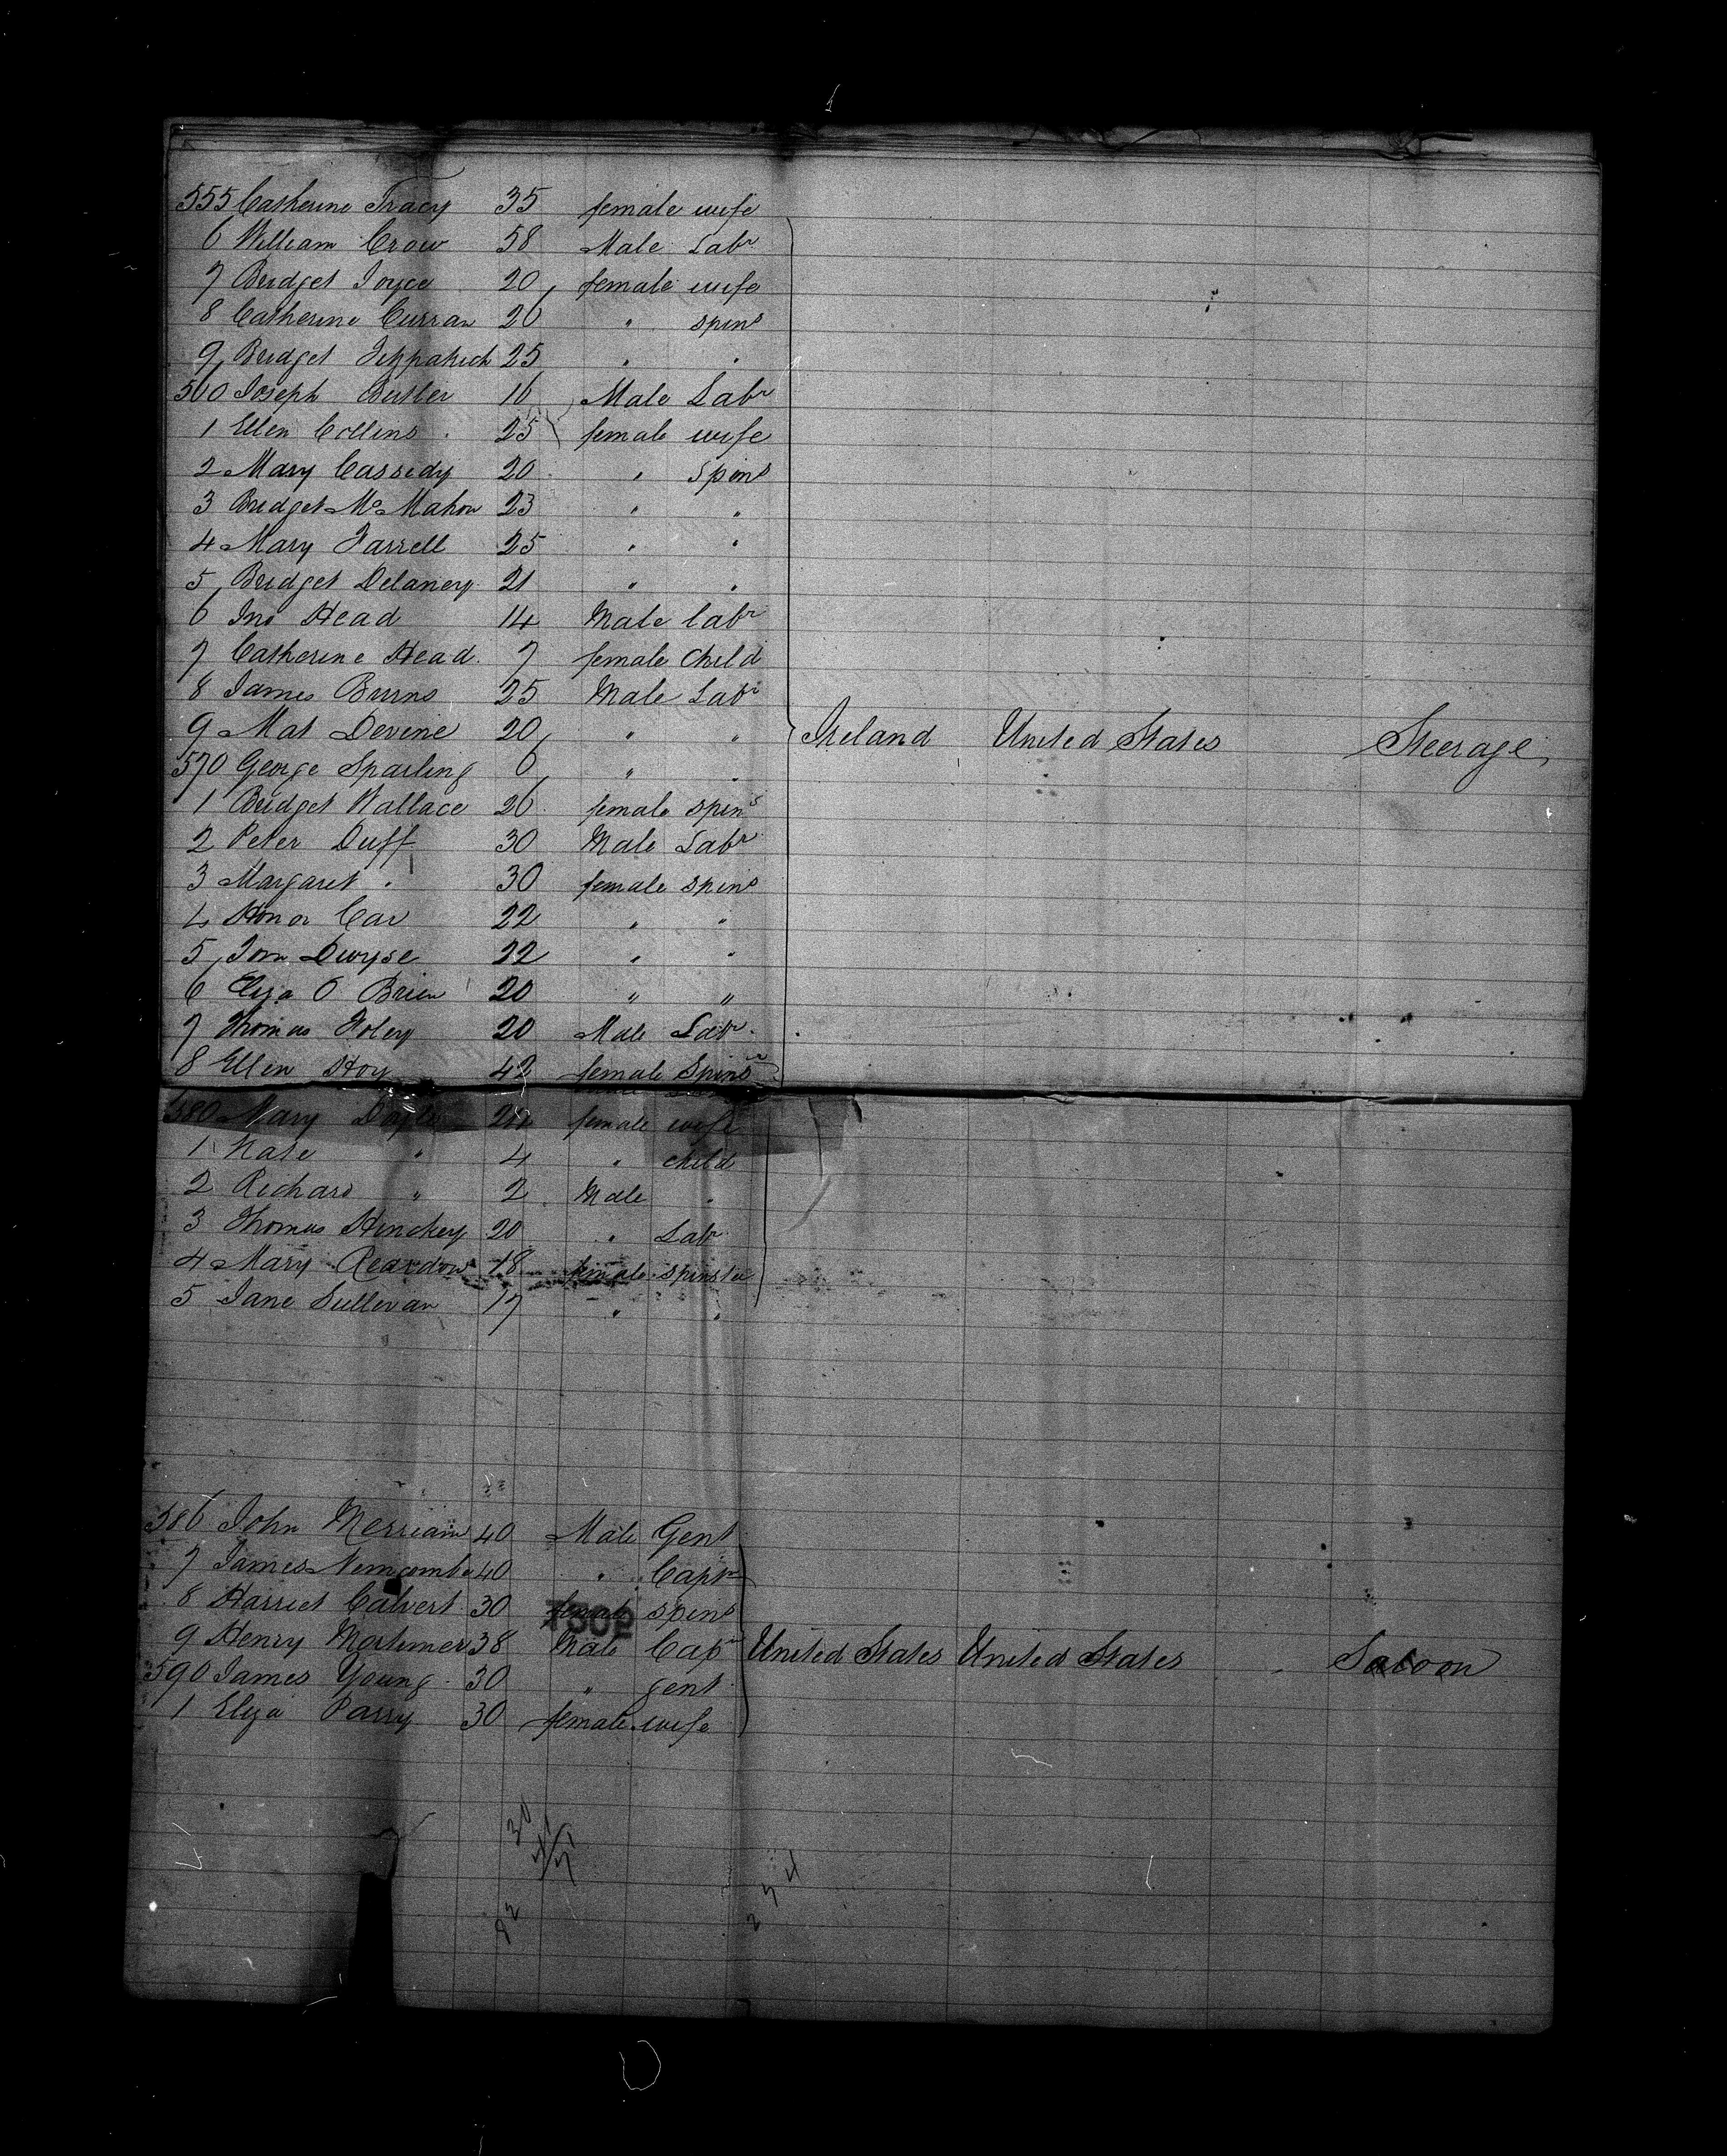 555 Catherine Tracy 35 female wife
6 William Crow 58 Male Labr
7 Bridget Joyce 20 female wife
8 Catherine Curran 26 " spins
9 Bridget 25 " "
560 Joseph Butler 16 Male Labr
1 Ellen Collins 25 female wife
2 Mary Cassidy 20 " Spins
3 Bridget McMahon 23 " "
4 Mary Farrell 25 " "
5 Bridget Delaney 21 " "
6 Jno Head 14 Male labr
7 Catherine Head 7 female Child
8 James Burns 25 Male Labr
9 Mat Devine 20 " " Ireland United States Steerage
570 George Sparling 6 " "
1 Bridget Wallace 26 female spins
2 Peter Duff 30 Male Labr
3 Margaret " 30 female spins
4 Honor Car 22 " "
5 Dwyse 22 " "
6 Eliza O Brien 20 " "
7 Thomas Foley 20 Male Labr
8 Ellen Hoy 42 female Spins
580 Mary Doyle female wife
1 Kate " 4 " child
2 Richard " 2 Male "
3 Thomas Hinckey 20 " Labr
4 Mary Reardon 18 female spinster
5 Jane Sullivan 17 " "
586 John Merriam 40 Male Gent
7 James Newcombe 40 " Captn
8 Harriet Calvert 30 female spins
7502
9 Henry Mortimer 38 Male Capn United States United States Saloon
590 James Young 30 " gent
1 Eliza Parry 30 female wife
30